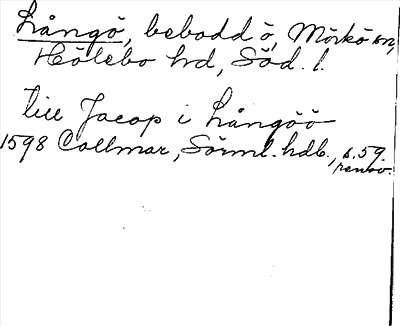 Långö, bebodd ö, Mörkö sn,
Hölebo hd, Söd. l.
till Jacop i Långöö
1598 Collmar, Sörml. hdl., s. 59.
renov.